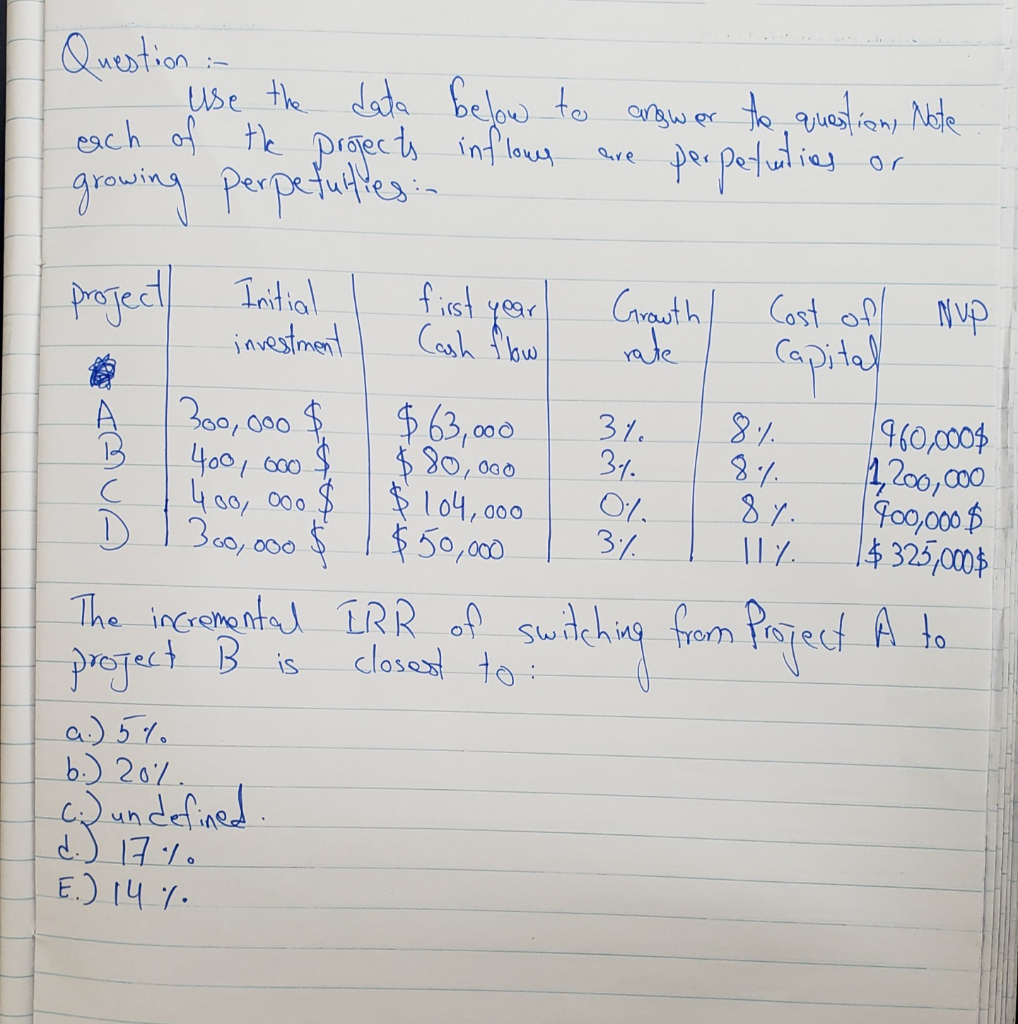 Question :-
Use the data below to answer the question, Note
each of the projects inflows are perpetuities or
growing perpetuities :-
project Initial investment first year Cash flow Growth rate Cost of Capital NVP
A 300,000 $ $ 63,000 3% 8% 960,000$
B 400,000 $ $ 80,000 3% 8% 1,200,000
C 400,000 $ $ 104,000 0% 8% 900,000 $
D 300,000 $ $ 50,000 3% 11% $ 325,000$
The incremental IRR of switching from Project A to
project B is closest to :
a.) 5%
b.) 20%.
C.) undefined.
d.) 17%
E.) 14%.